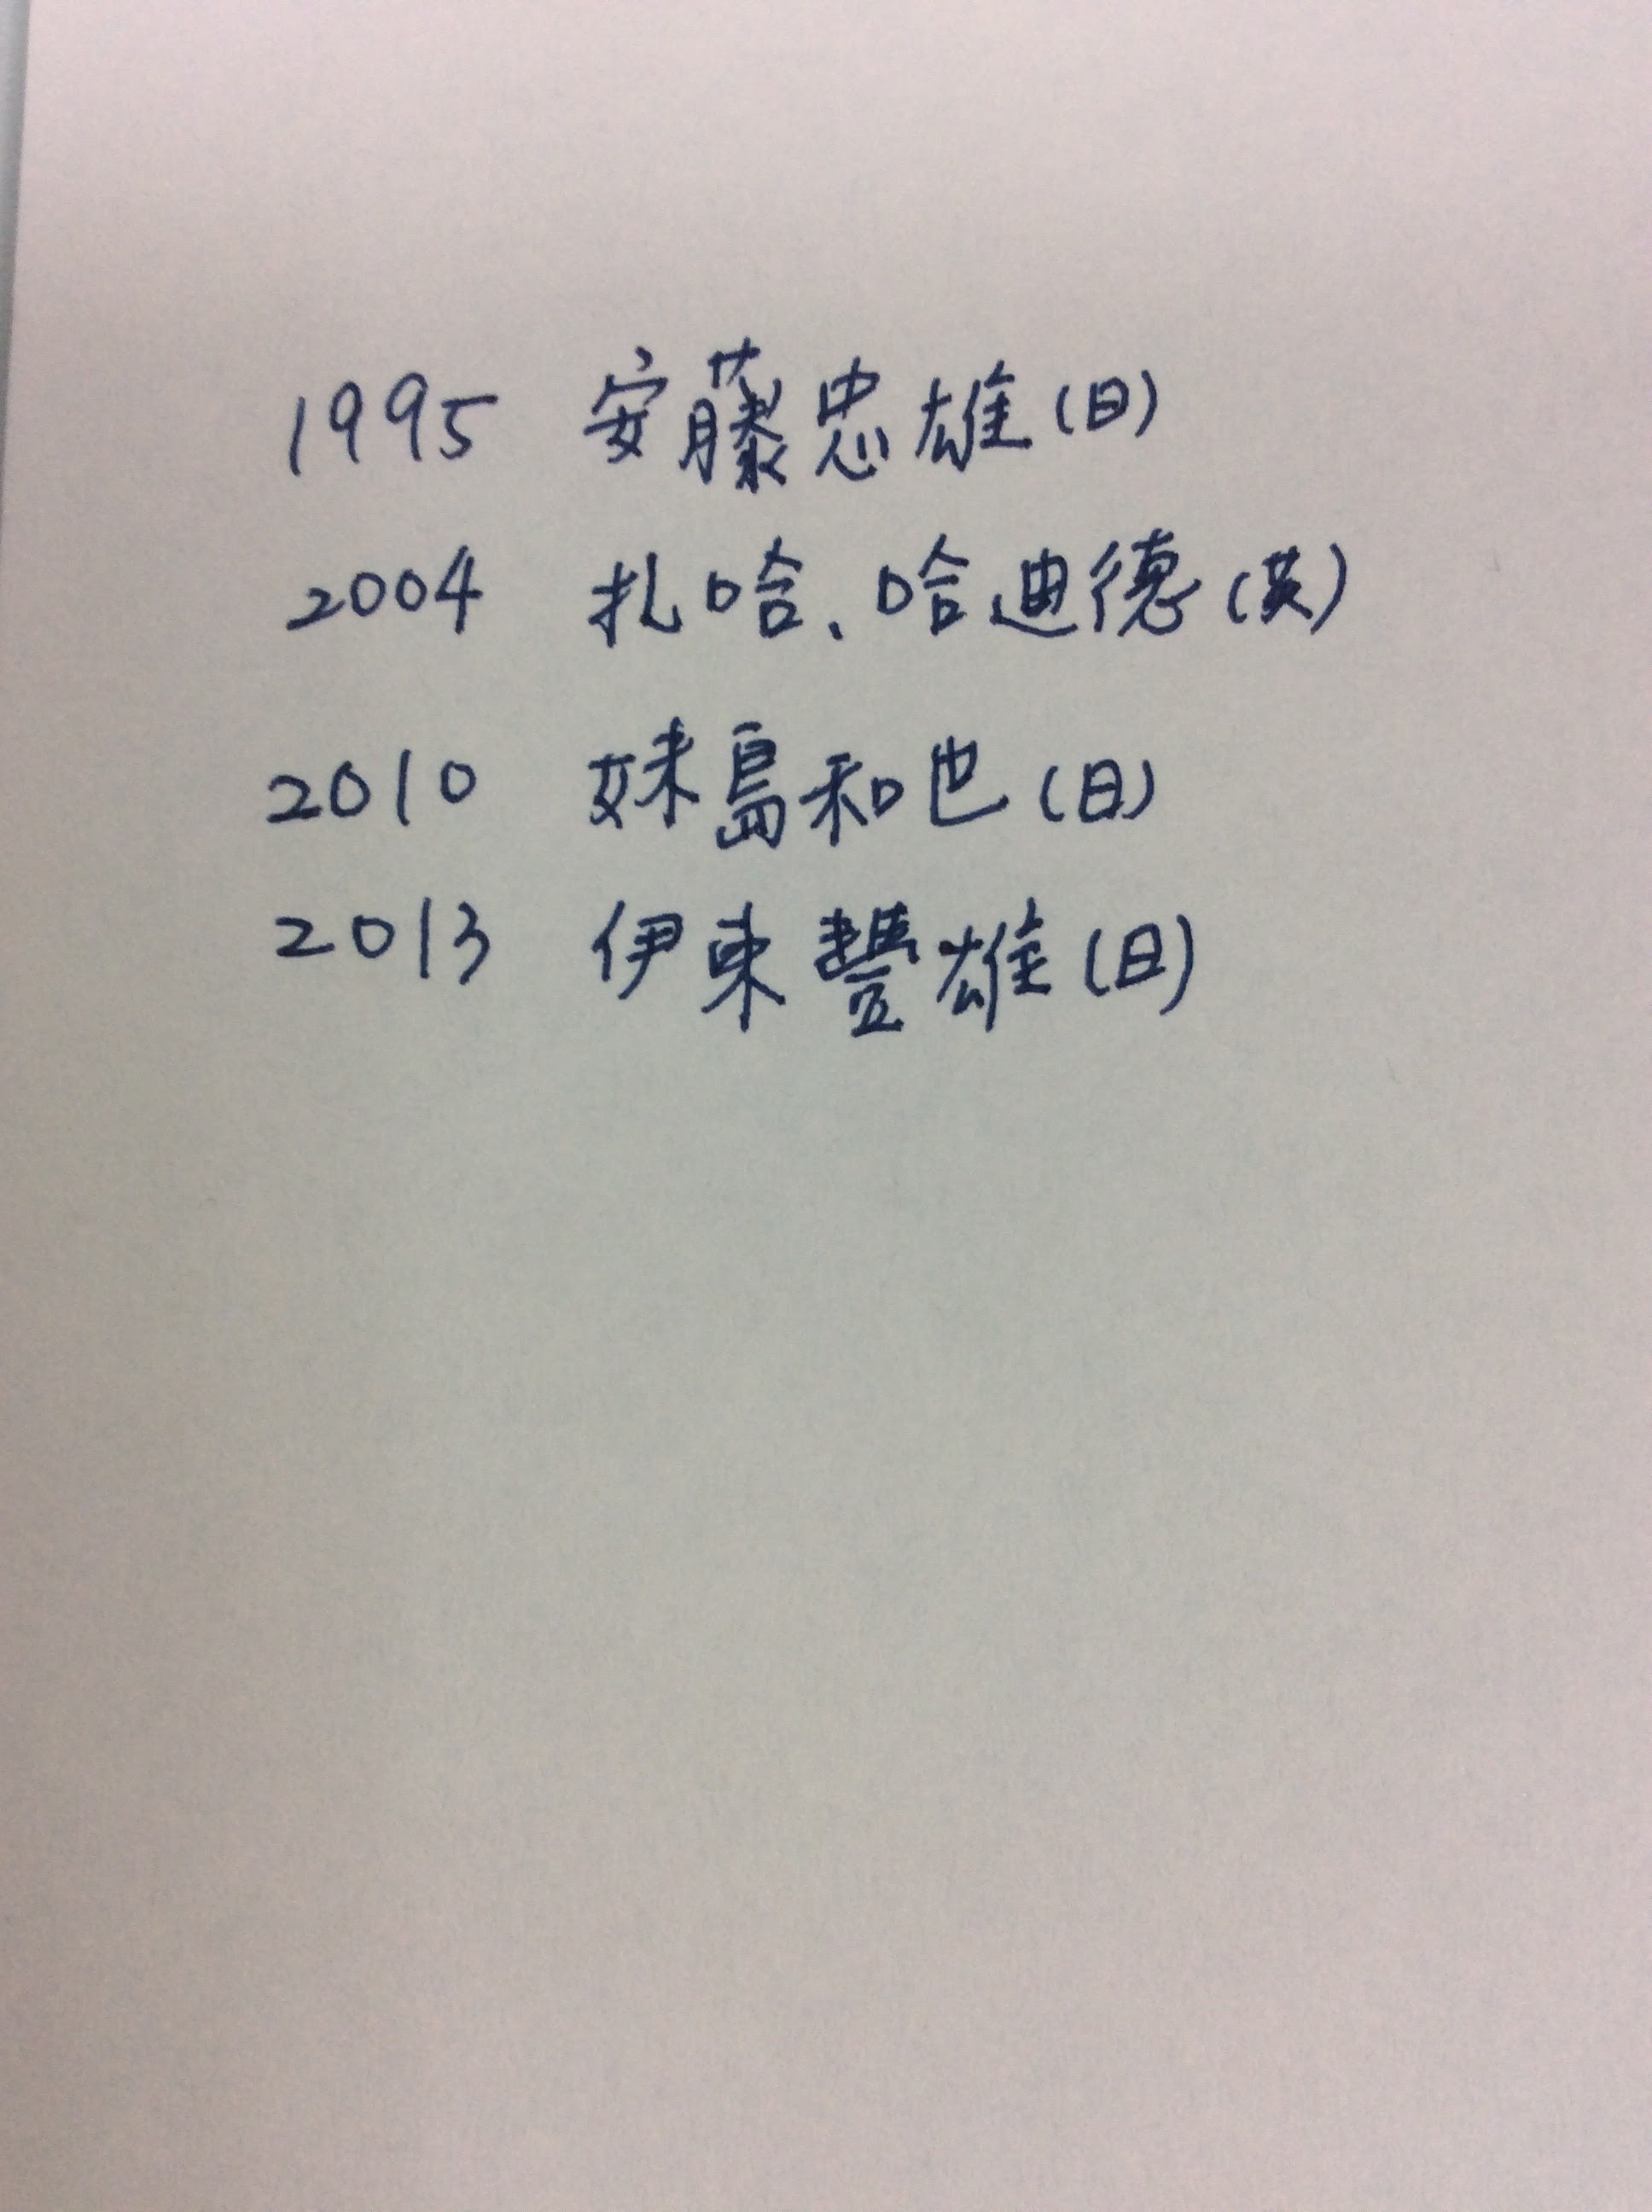 1995 安藤忠雄(日)
2004 扎哈、哈迪德(英)
2010 妹島和也(日)
2013 伊東豐雄(日)